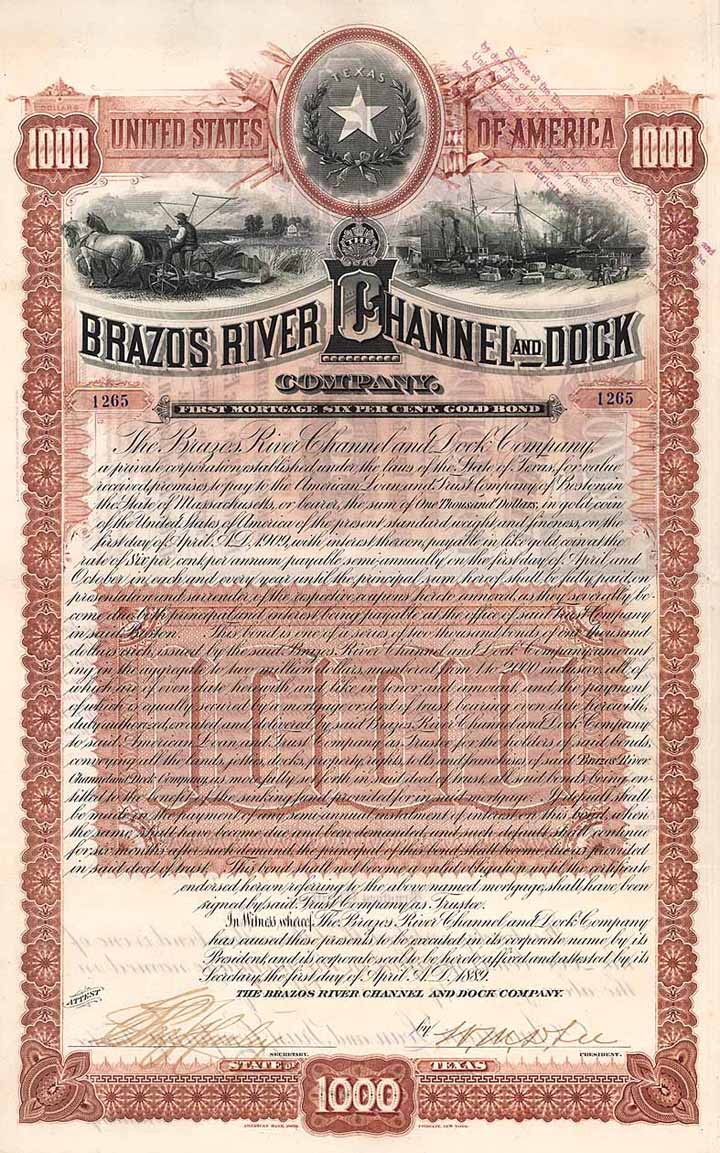 TEXAS
DOLLARS
DOLLARS
1000 UNITED STATES OF AMERICA 1000
BRAZOS RIVER CHANNEL AND DOCK
COMPANY.
1265 1265
FIRST MORTGAGE SIX PER CENT. GOLD BOND
The Brazos River Channel and Dock Company,
a private corporation established under the laws of the State of Texas, for value
received, promises to pay to the American Loan and Trust Company, of Boston, in
the State of Massachusetts, or bearer, the sum of One Thousand Dollars, in gold coin
of the United States of America of the present standard weight and fineness, on the
first day of April A.D. 1909, with interest thereon, payable in like gold coin at the
rate of Six per cent. per annum payable semi-annually on the first day of April and
October, in each and every year until the principal sum hereof shall be fully paid, on
presentation and surrender of the respective coupons hereto annexed, as they severally be-
come due, both principal and interest being payable at the office of said Trust Company
in said Boston. This bond is one of a series of two thousand bonds of one thousand
dollars each, issued by the said Brazos River Channel and Dock Company, amount-
ing in the aggregate to two million dollars, numbered from 1 to 2000 inclusive, all of
which are of even date herewith and of like tenor and amount, and the payment
of which is equally secured by a mortgage or deed of trust bearing even date herewith,
duly authorized, executed and delivered by said Brazos River Channel and Dock Company
to said American Loan and Trust Company as Trustee for the holders of said bonds,
conveying all the lands, jetties, docks, property, rights, tolls and franchises of said Brazos River
Channel and Dock Company, as more fully set forth in said deed of trust, all said bonds being en-
titled to the benefit of the sinking fund provided for in said mortgage. If default shall
be made in the payment of any semi-annual instalment of interest on this bond, when
the same shall have become due and been demanded, and such default shall continue
for six months after such demand, the principal of this bond shall become due as provided
in said deed of trust. This bond shall not become a valid obligation until the certificate
endorsed hereon referring to the above named mortgage, shall have been
signed by said Trust Company as Trustee.
In Witness whereof, The Brazos River Channel and Dock Company
has caused these presents to be executed in its corporate name by its
President, and its corporate seal to be hereto affixed and attested by its
Secretary, the first day of April A.D. 1889.
THE BRAZOS RIVER CHANNEL AND DOCK COMPANY.
ATTEST
by
SECRETARY. PRESIDENT.
STATE OF TEXAS
1000
AMERICAN BANK NOTE COMPANY, NEW YORK.